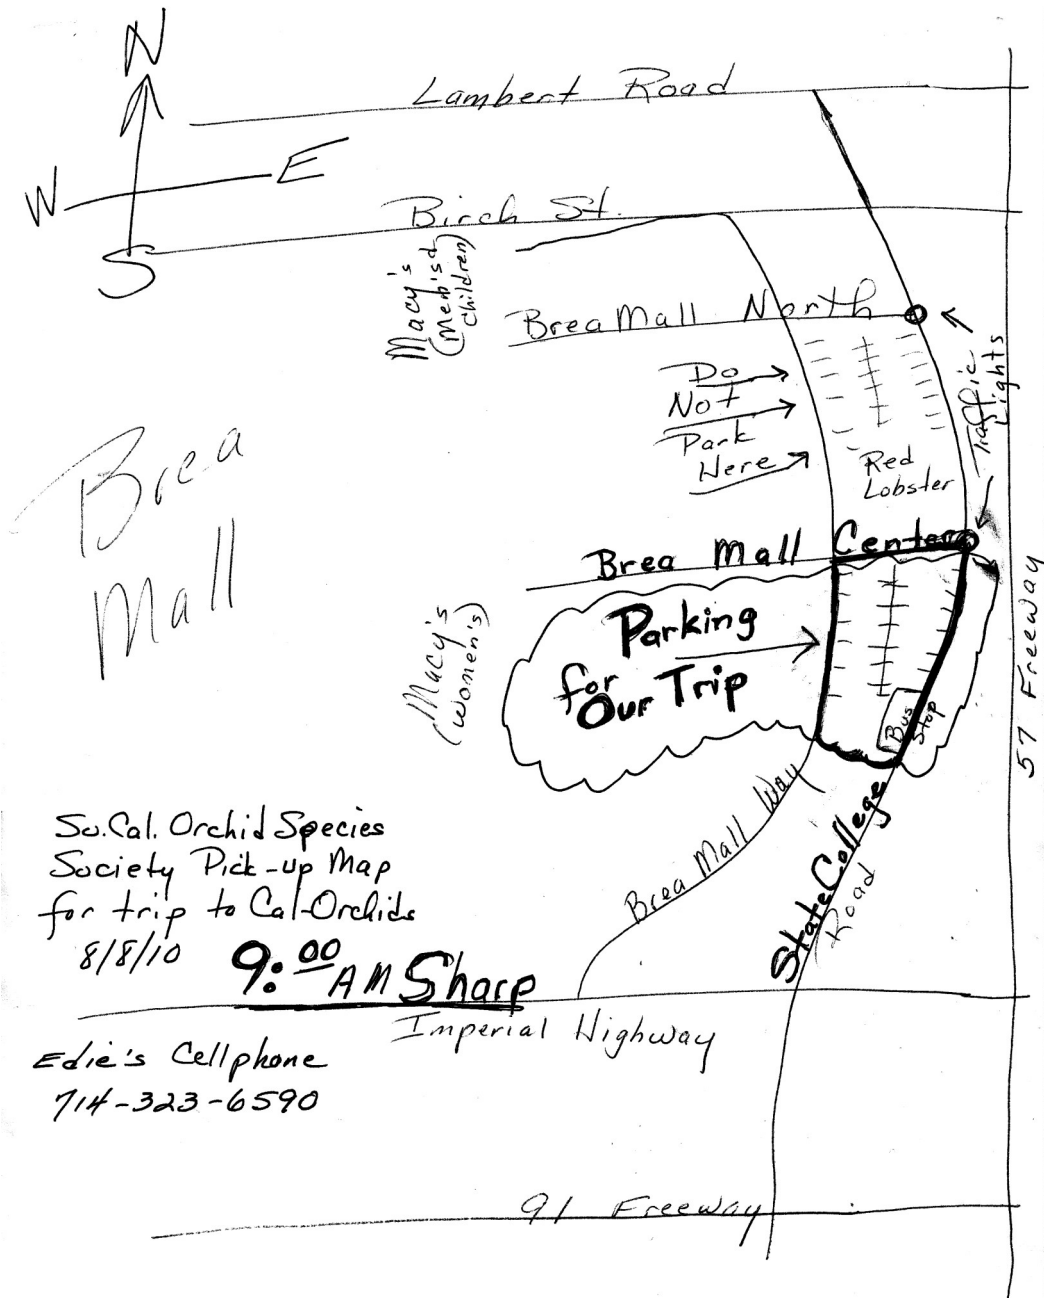 N
Lambert Road
W
E
S
Birch St.
Macy's
(Men's &
Children)
Brea Mall North
Traffic
Lights
Do
Not
Park
Here
Red
Lobster
Brea
Mall
Brea Mall Center
Parking
for
Our Trip
Macy's
(Women's)
Bus
Stop
57 Freeway
Brea Mall Way
State College
Road
So. Cal. Orchid Species
Society Pick-up Map
for trip to Cal-Orchids
8/8/10
9:00 AM Sharp
Imperial Highway
Edie's Cellphone
714-323-6590
91 Freeway